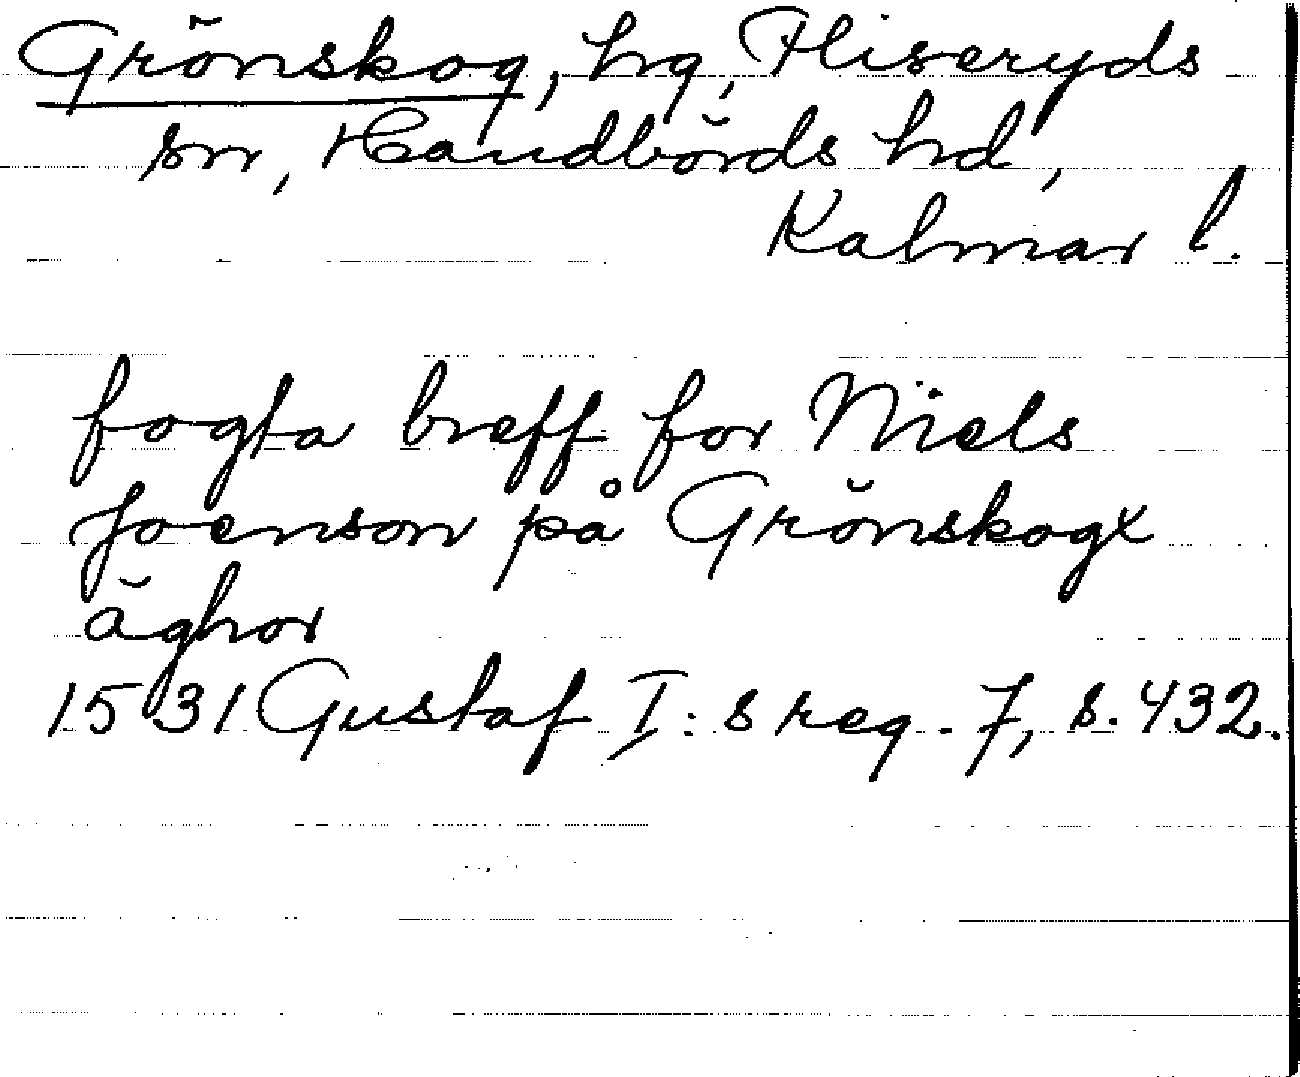 Grönskog, hg, Fliseryds
sn, Handbörds hd,
Kalmar l.
fogta breff for Niels
Joenson på Grönskogx
äghor
1531 Gustaf I:s reg. 7, s. 432.